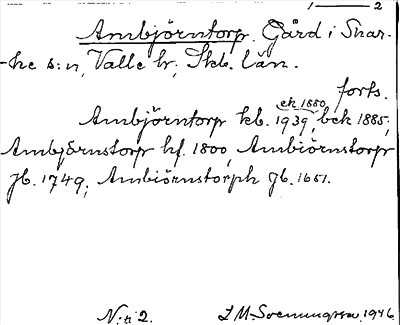 1 — 2
Ambjörntorp. Gård i Skar-
ke s:n, Valle hr, Skb. län.
forts.
ek 1880,
Ambjörntorp kb. 1939, bek 1885,
Ambjörnstorp hf. 1800, Ambiörnstorp
Jb. 1749, Ambiörnstorph Jb. 1651.
N:r 2. I.M. 1946